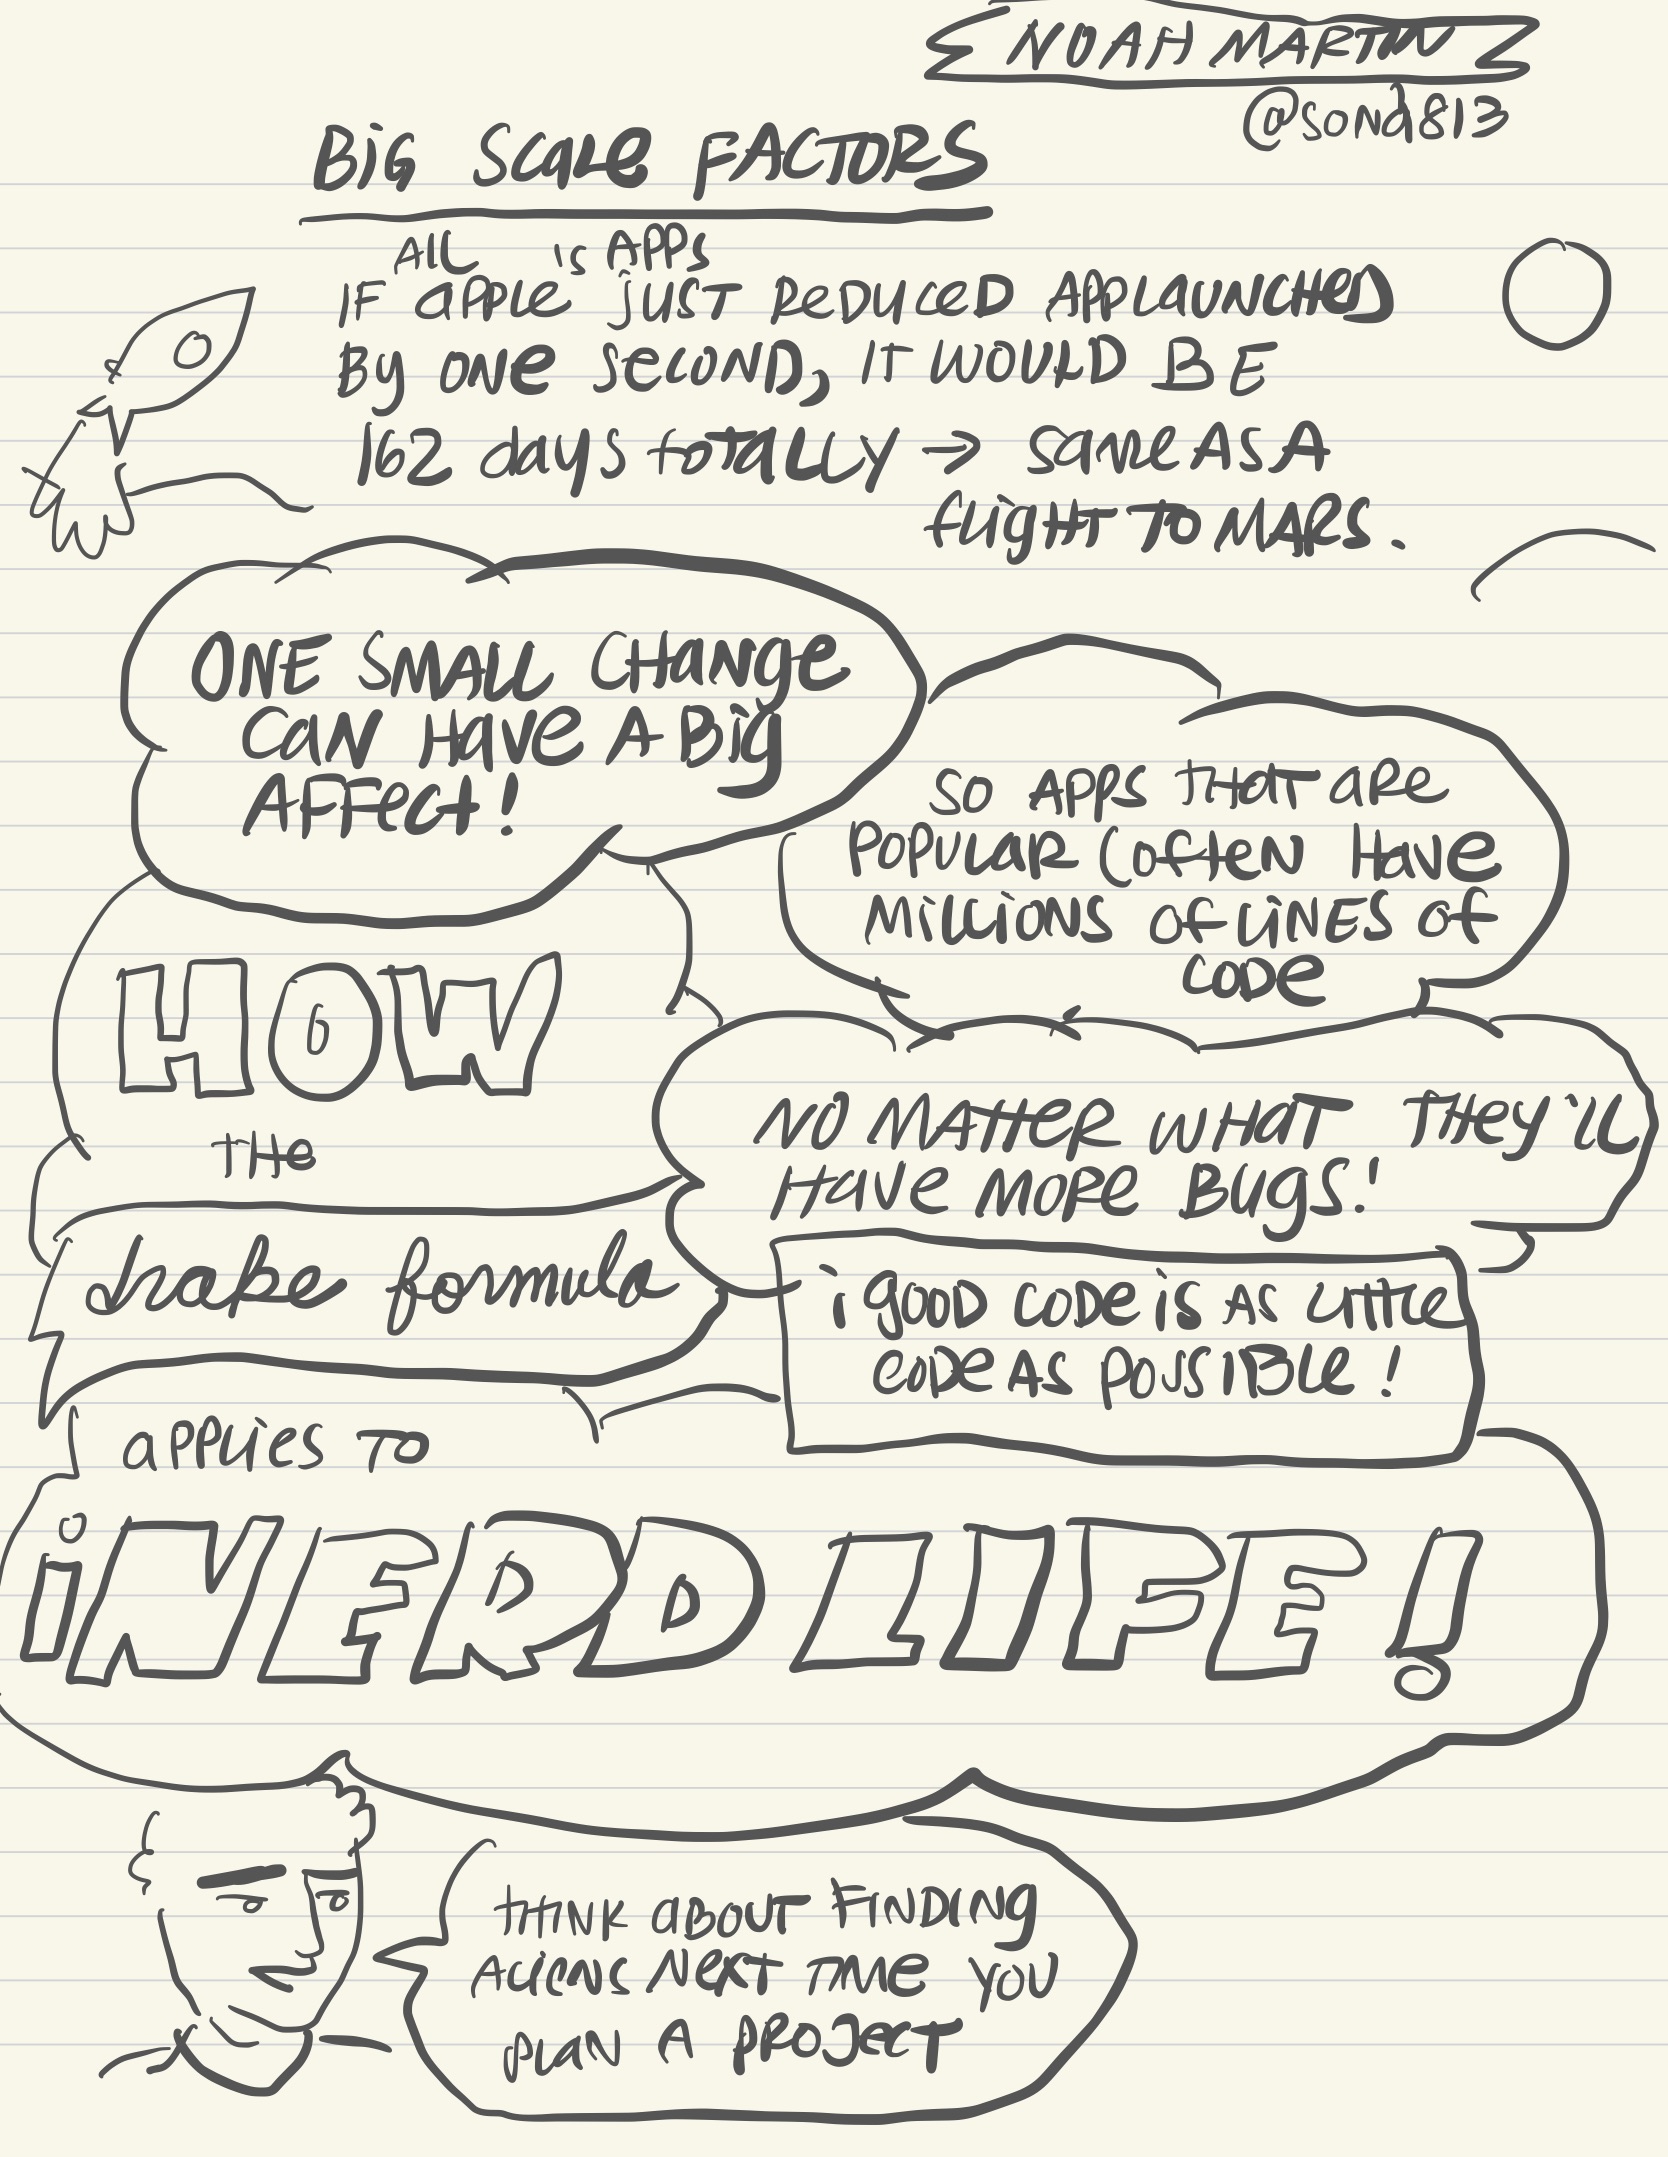 NOAH MARTIN
@sond813
BiG Scale FACTORS
All is APPS
IF apple just Reduced App launched
By one second, it would BE
162 days totally → same AS A
flight TO MARS.
ONE SMALL CHange
CAN Have A Big
AFFect!
SO APPS THAT are
POPULAR (often Have
Millions of LINES of
CODE
HOW
THe
NO MATTER WHAT THey'll
Have MORe BUgS!
drake formula
¡ good CODe is AS little
CODe AS POSSIBLe!
applies TO
iNERD LIFE!
THINK about FINDING
Aliens Next time you
plan A PROJect